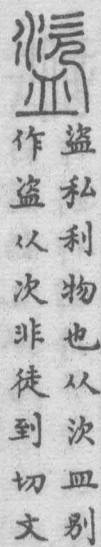 盜
盜私利物也从㳄皿别
作盗从次非徒到切文